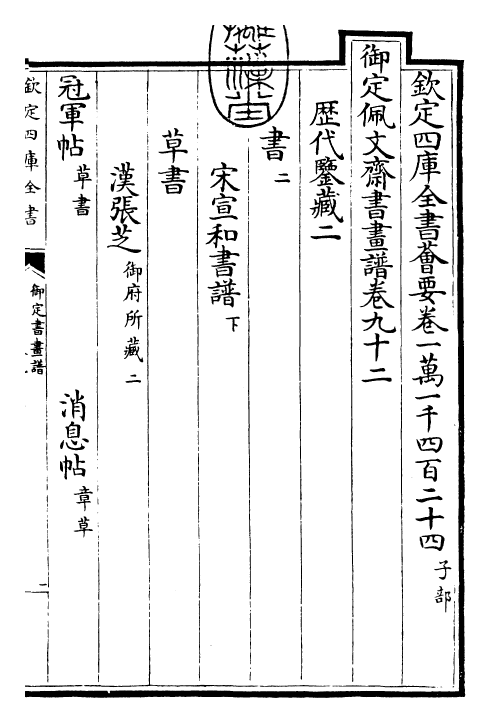 欽定四庫全書薈要卷一萬一千四百二十四 子部
御定佩文齋書畫譜卷九十二
歷代鑒藏二
書二
宋宣和書譜下
草書
漢張芝 御府所藏二
冠軍帖 草書 消息帖 章草
欽定四庫全書
御定書畫譜